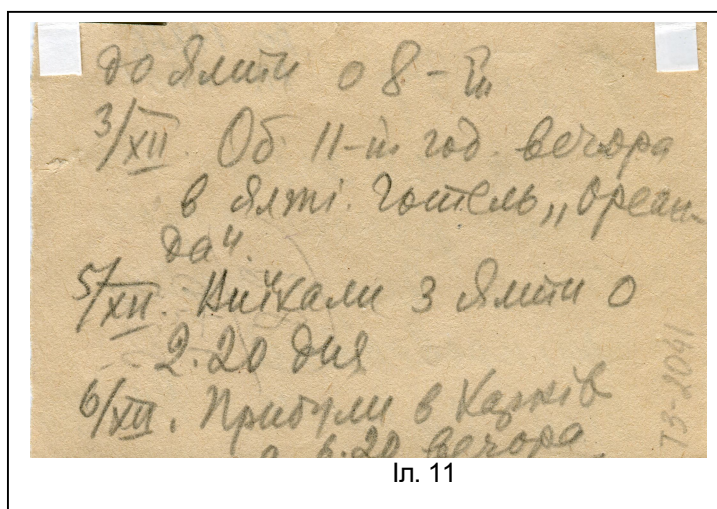 до Ялти о 8-й
3/XII. Об 11-й год. вечора
в Ялті. Готель „Ореан-
да“.
5/XII. Виїхали з Ялти о
2.20 дня
6/XII. Прибули в Харків
о 6.20 вечора
73-2041
Іл. 11